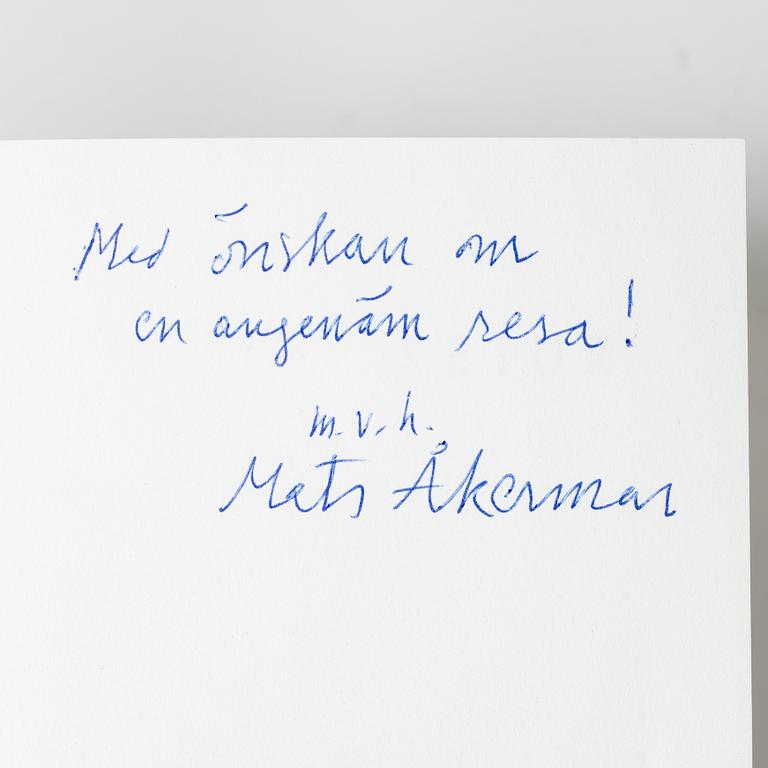 Med önskan om
en angenäm resa!
m.v.h.
Mats Åkerman